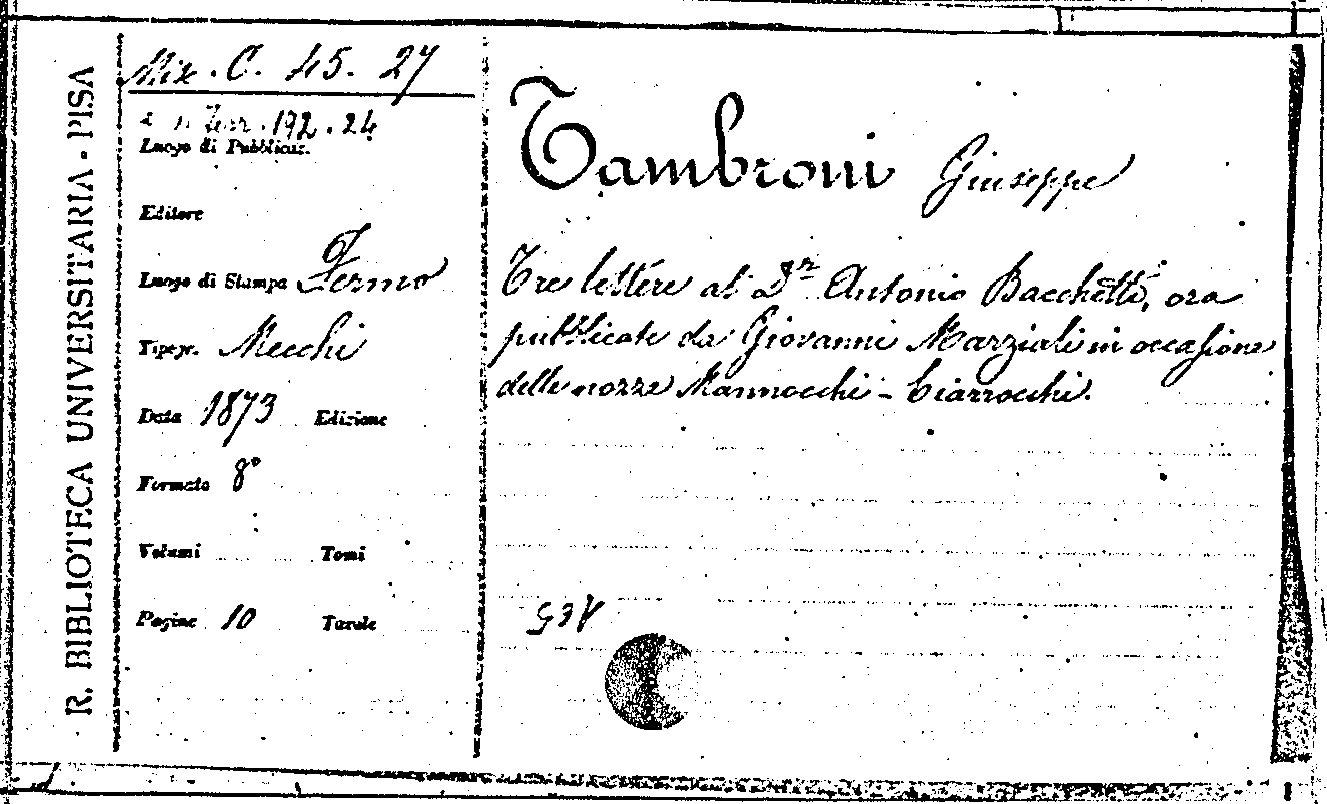 R. BIBLIOTECA UNIVERSITARIA - PISA
Mix. C. 45. 27
192.24
Luogo di Pubblicaz.
Editore
Luogo di Stampa Fermo
Tipogr. Mecchi
Data 1873 Edizione
Formato 8°
Volumi Tomi
Pagine 10 Tavole
Tambroni Giuseppe
Tre lettere al Dr. Antonio Bacchetti, ora
pubblicate da Giovanni Marziali in occasione
delle nozze Mannocchi - Ciarrocchi.